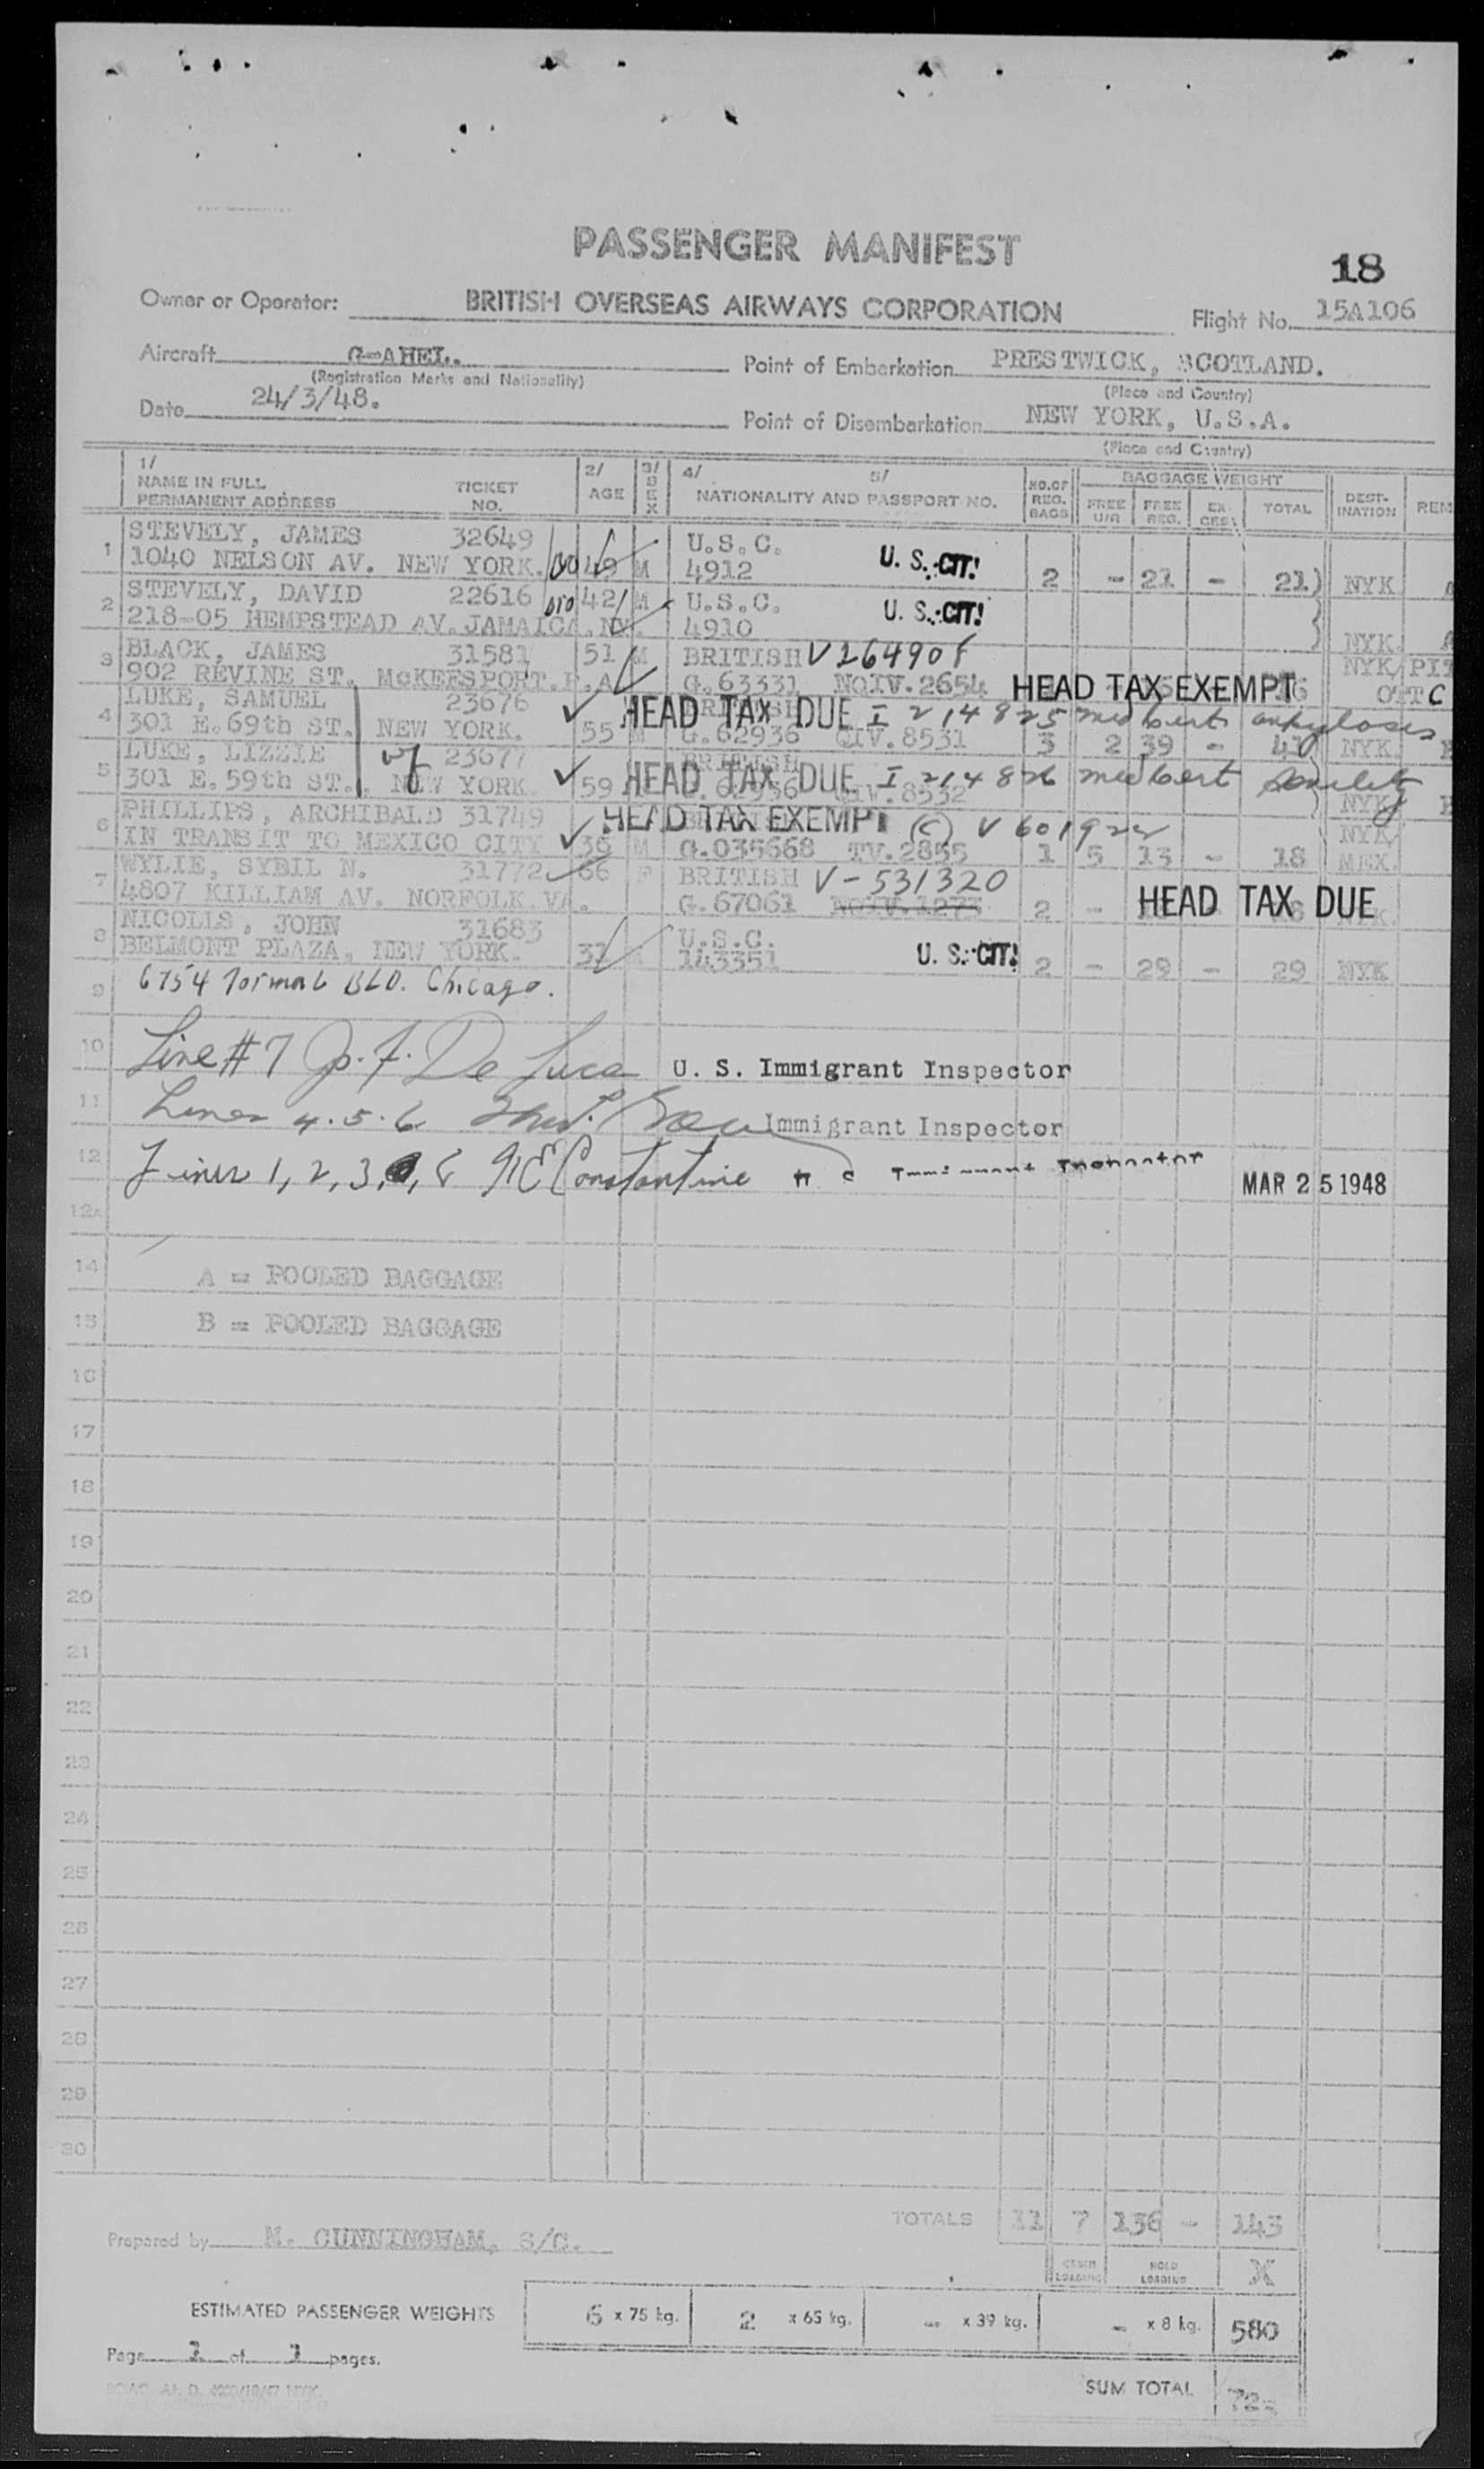 PASSENGER MANIFEST
18
Owner or Operator: BRITISH OVERSEAS AIRWAYS CORPORATION Flight No. 15A106
Aircraft G-AHEL. Point of Embarkation PRESTWICK, SCOTLAND.
(Registration Marks and Nationality) (Place and Country)
Date 24/3/48. Point of Disembarkation NEW YORK, U.S.A.
(Place and Country)
1/ 2/ 3/ 4/ 5/ BAGGAGE WEIGHT
NAME IN FULL PERMANENT ADDRESS TICKET NO. AGE SEX NATIONALITY AND PASSPORT NO. NO. OF REG. BAGS FREE U/R FREE REG. EX- CESS TOTAL DEST- INATION REM
1 STEVELY, JAMES 32649 U.S.C.
1040 NELSON AV. NEW YORK. 49 M 4912 U. S. CIT! 2 - 21 - 21) NYK A
2 STEVELY, DAVID 22616 42 M U.S.C. U. S. CIT!
218-05 HEMPSTEAD AV. JAMAICA. NY. 4910 NYK. A
3 BLACK, JAMES 31581 51 M BRITISH V 264908 NYK/PIT
902 REVINE ST. McKEESPORT. P.A. G.63331 NQIV.2654 HEAD TAX EXEMPT C
4 LUKE, SAMUEL 23676 BRITISH HEAD TAX DUE I 214825 med cert ankylosis
301 E.69th ST. NEW YORK. 55 M G.62936 QIV.8531 3 2 39 - 41) NYK. B
5 LUKE, LIZZIE wf 23677 BRITISH HEAD TAX DUE I 214826 med cert Senility
301 E.59th ST., NEW YORK. 59 G.62936 QIV.8532 NYK B
6 PHILLIPS, ARCHIBALD 31749 HEAD TAX EXEMPT (C) V 601922 NYK/
IN TRANSIT TO MEXICO CITY 36 M G.035668 TV.2855 1 5 13 - 18 MEX.
7 WYLIE, SYBIL N. 31772 66 F BRITISH V-531320
4807 KILLIAM AV. NORFOLK VA. G.67061 NQIV.1273 2 - HEAD TAX DUE
8 NICOLLS, JOHN 31683 U.S.C.
BELMONT PLAZA, NEW YORK. 37 143351 U. S. CIT! 2 - 29 - 29 NYK
9 6754 Normal BLD. Chicago.
10 Line #7 De Luca U. S. Immigrant Inspector
11 Lines 4.5.6 Immigrant Inspector
12 Lines 1, 2, 3, 8 Constantine Immigrant Inspector MAR 25 1948
12A
14 A = POOLED BAGGAGE
15 B = POOLED BAGGAGE
16
17
18
19
20
21
22
23
24
25
26
27
28
29
30
TOTALS 11 7 136 - 143
Prepared by M. CUNNINGHAM, S/C.
CABIN LOADING HOLD LOADING X
ESTIMATED PASSENGER WEIGHTS 6 x 75 kg. 2 x 65 kg. - x 39 kg. - x 8 kg. 580
Page 1 of 1 pages.
SUM TOTAL 723